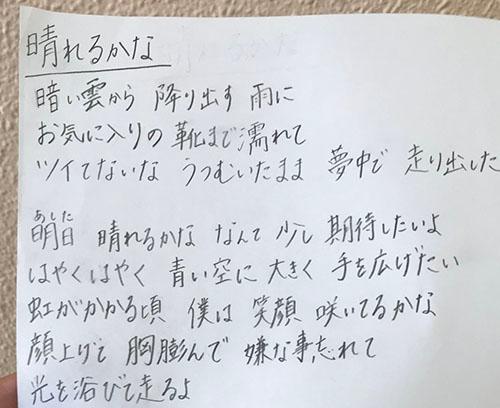 晴れるかな
暗い雲から 降り出す 雨に
お気に入りの 靴まで濡れて
ツイてないな うつむいたまま 夢中で 走り出した
あした
明日 晴れるかな なんて 少し 期待したいよ
はやくはやく 青い空に 大きく 手を広げたい
虹がかかる頃 僕は 笑顔 咲いてるかな
顔上げて 胸膨んで 嫌な事忘れて
光を浴びて走るよ